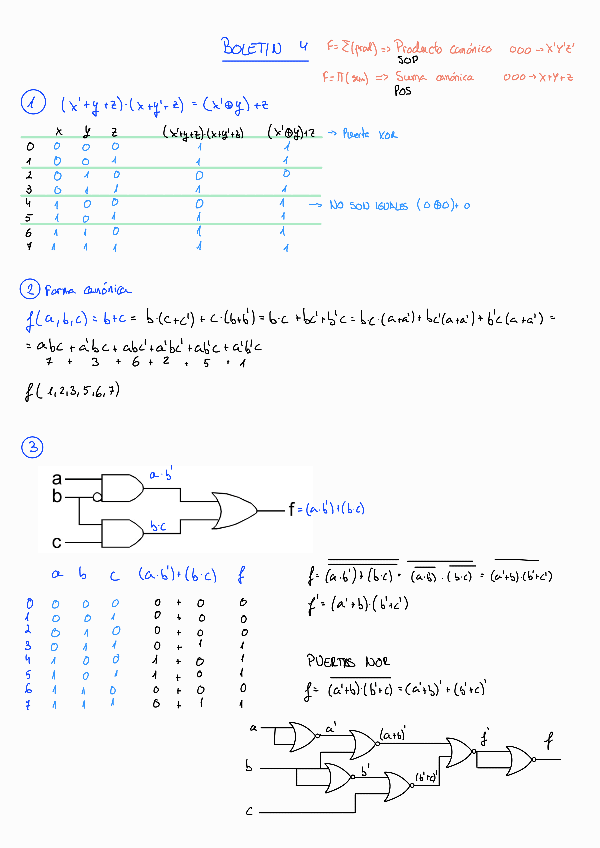 BOLETIN 4
F=Σ(prod) => Producto canónico 000→X'Y'Z'
SOP
F=Π(sum) => Suma canónica 000→X+Y+Z
POS
1 (x'+y+z)·(x+y'+z) = (x'⊕y)+z
x y z (x'+y+z)·(x+y'+z) (x'⊕y)+z → Puerta XOR
0 0 0 0 1 1
1 0 0 1 1 1
2 0 1 0 0 0
3 0 1 1 1 1
4 1 0 0 0 1 → NO SON IGUALES (0⊕0)+0
5 1 0 1 1 1
6 1 1 0 1 1
7 1 1 1 1 1
2 Forma canónica
f(a,b,c) = b+c = b·(c+c') + c·(b+b') = b·c + bc' + b'c = b·c·(a+a') + bc'(a+a') + b'c(a+a') =
= abc + a'bc + abc' + a'bc' + ab'c + a'b'c
7 + 3 + 6 + 2 + 5 + 1
f(1,2,3,5,6,7)
3
a
b
c
a·b'
b·c
f = (a·b')+(b·c)
a b c (a·b')+(b·c) f
0 0 0 0 0 + 0 0
1 0 0 1 0 + 0 0
2 0 1 0 0 + 0 0
3 0 1 1 0 + 1 1
4 1 0 0 1 + 0 1
5 1 0 1 1 + 0 1
6 1 1 0 0 + 0 0
7 1 1 1 0 + 1 1
f = (a·b')+(b·c) = (a·b')·(b·c) = (a'+b)·(b'+c')
f' = (a'+b)·(b'+c')
PUERTAS NOR
f = (a'+b)·(b'+c') = (a'+b)' + (b'+c')'
a a' (a+b)' f' f
b b' (b'+c)'
c